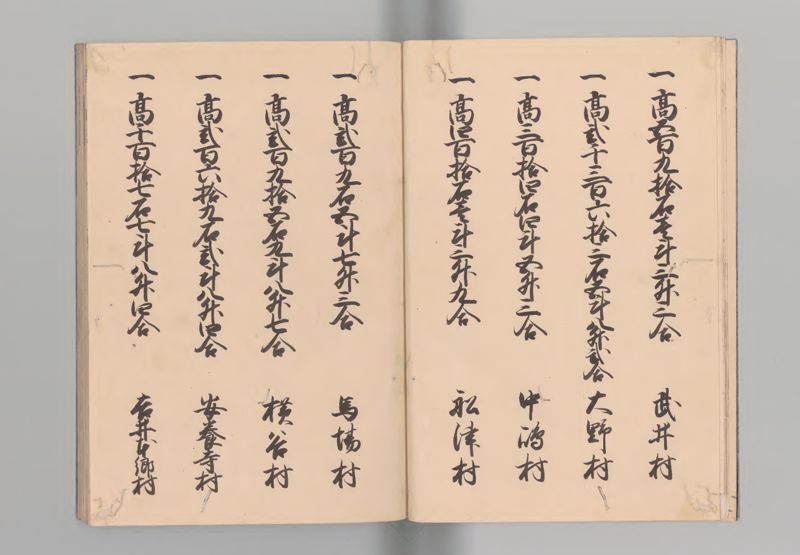 一 高五百九拾石壱斗三升二合 武井村
一 高弐千三百六拾三石五斗八升弐合 大野村
一 高三百拾四石四斗五升二合 中嶋村
一 高四百拾石壱斗二升九合 船津村
一 高弐百九石五斗七升三合 馬場村
一 高弐百九拾五石九斗八升七合 横谷村
一 高弐百六拾九石弐斗八升四合 安養寺村
一 高千百拾七石七斗八升四合 吉井本郷村